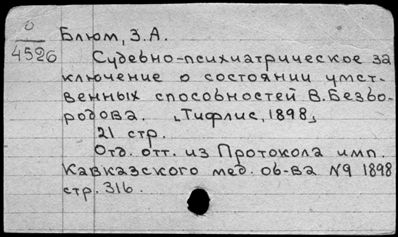 0
4526
Блюм, З.А.
Судебно-психиатрическое за
ключение о состоянии умст-
венных способностей В.Безбо-
родова. „Тифлис, 1898„
21 стр.
Отд. отт. из Протокола имп.
Кавказского мед. об-ва №9 1898
стр. 316.